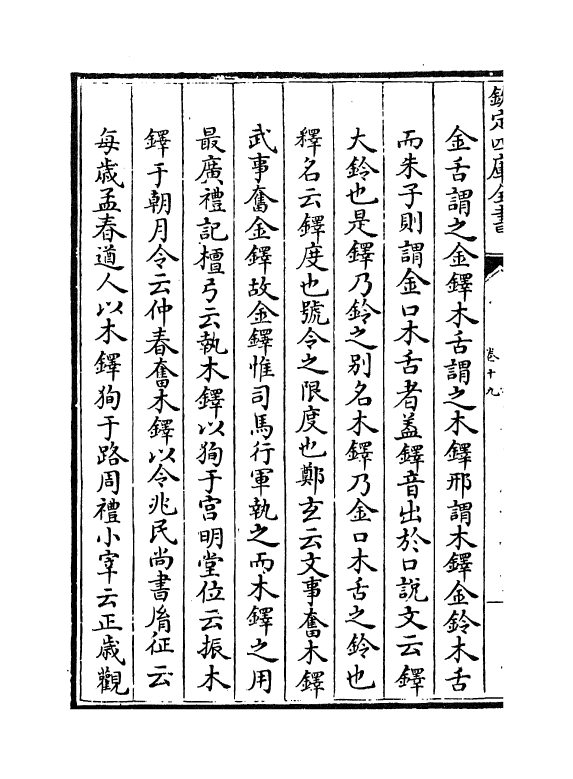 欽定四庫全書
卷十九
金舌謂之金鐸木舌謂之木鐸邢謂木鐸金鈴木舌
而朱子則謂金口木舌者葢鐸音出於口說文云鐸
大鈴也是鐸乃鈴之别名木鐸乃金口木舌之鈴也
釋名云鐸度也號令之限度也鄭玄云文事奮木鐸
武事奮金鐸故金鐸惟司馬行軍執之而木鐸之用
最廣禮記檀弓云執木鐸以狥于宫明堂位云振木
鐸于朝月令云仲春奮木鐸以令兆民尚書胤征云
每歲孟春遒人以木鐸狥于路周禮小宰云正歲觀